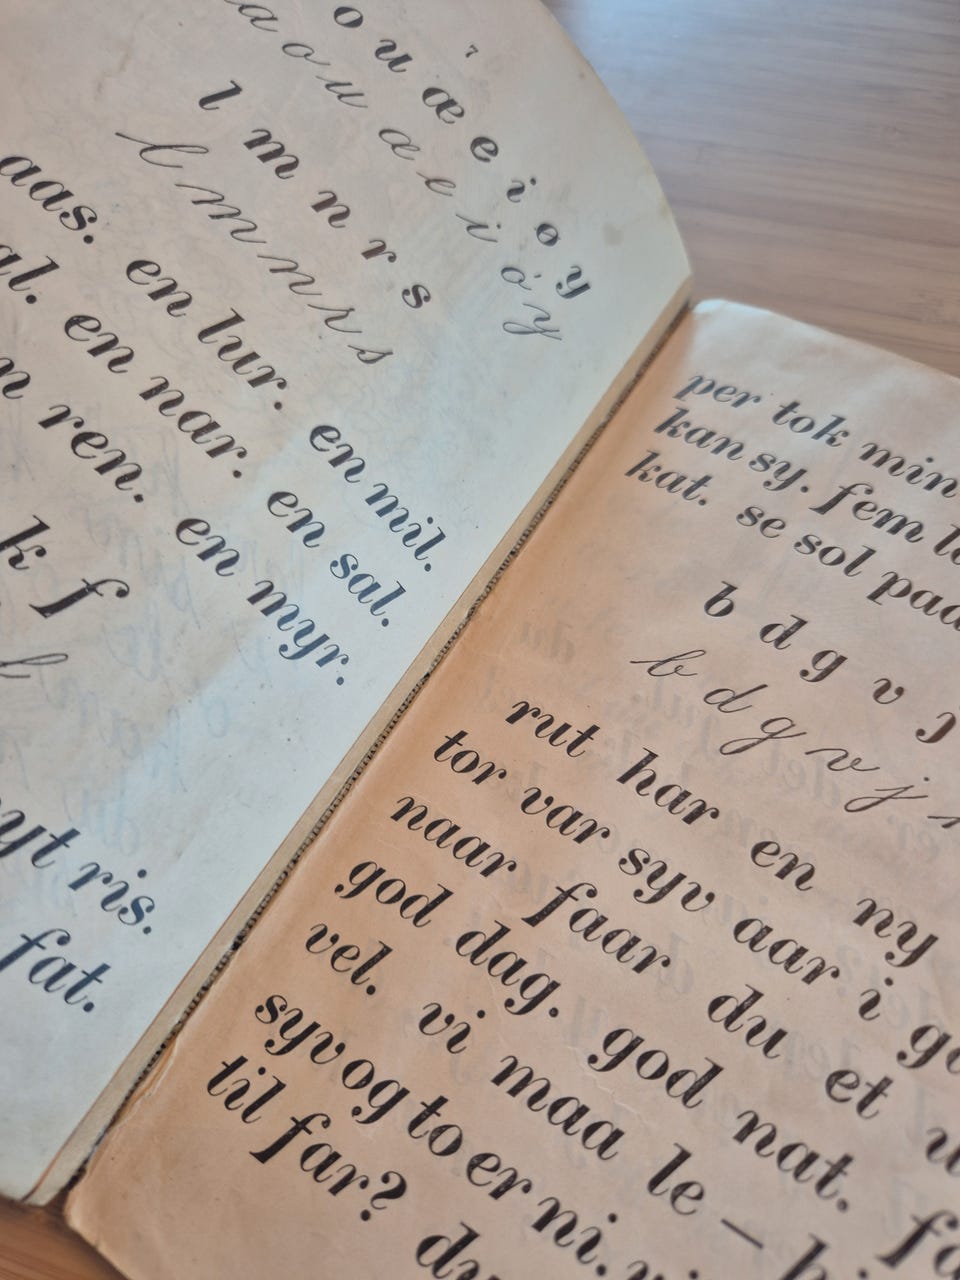 7
o u æ e i ø y
a o u æ e i ø y
l m n r s
l m n r s
aas. en lur. en mil.
al. en nar. en sal.
ren. en myr.
k f
ris.
fat.
per tok min
kan sy. fem
kat. se sol paa
b d g v j
b d g v j
rut har en ny
tor var syv aar i
naar faar du et
god dag. god nat.
vel. vi maa le —
syv og to er ni.
til far? du